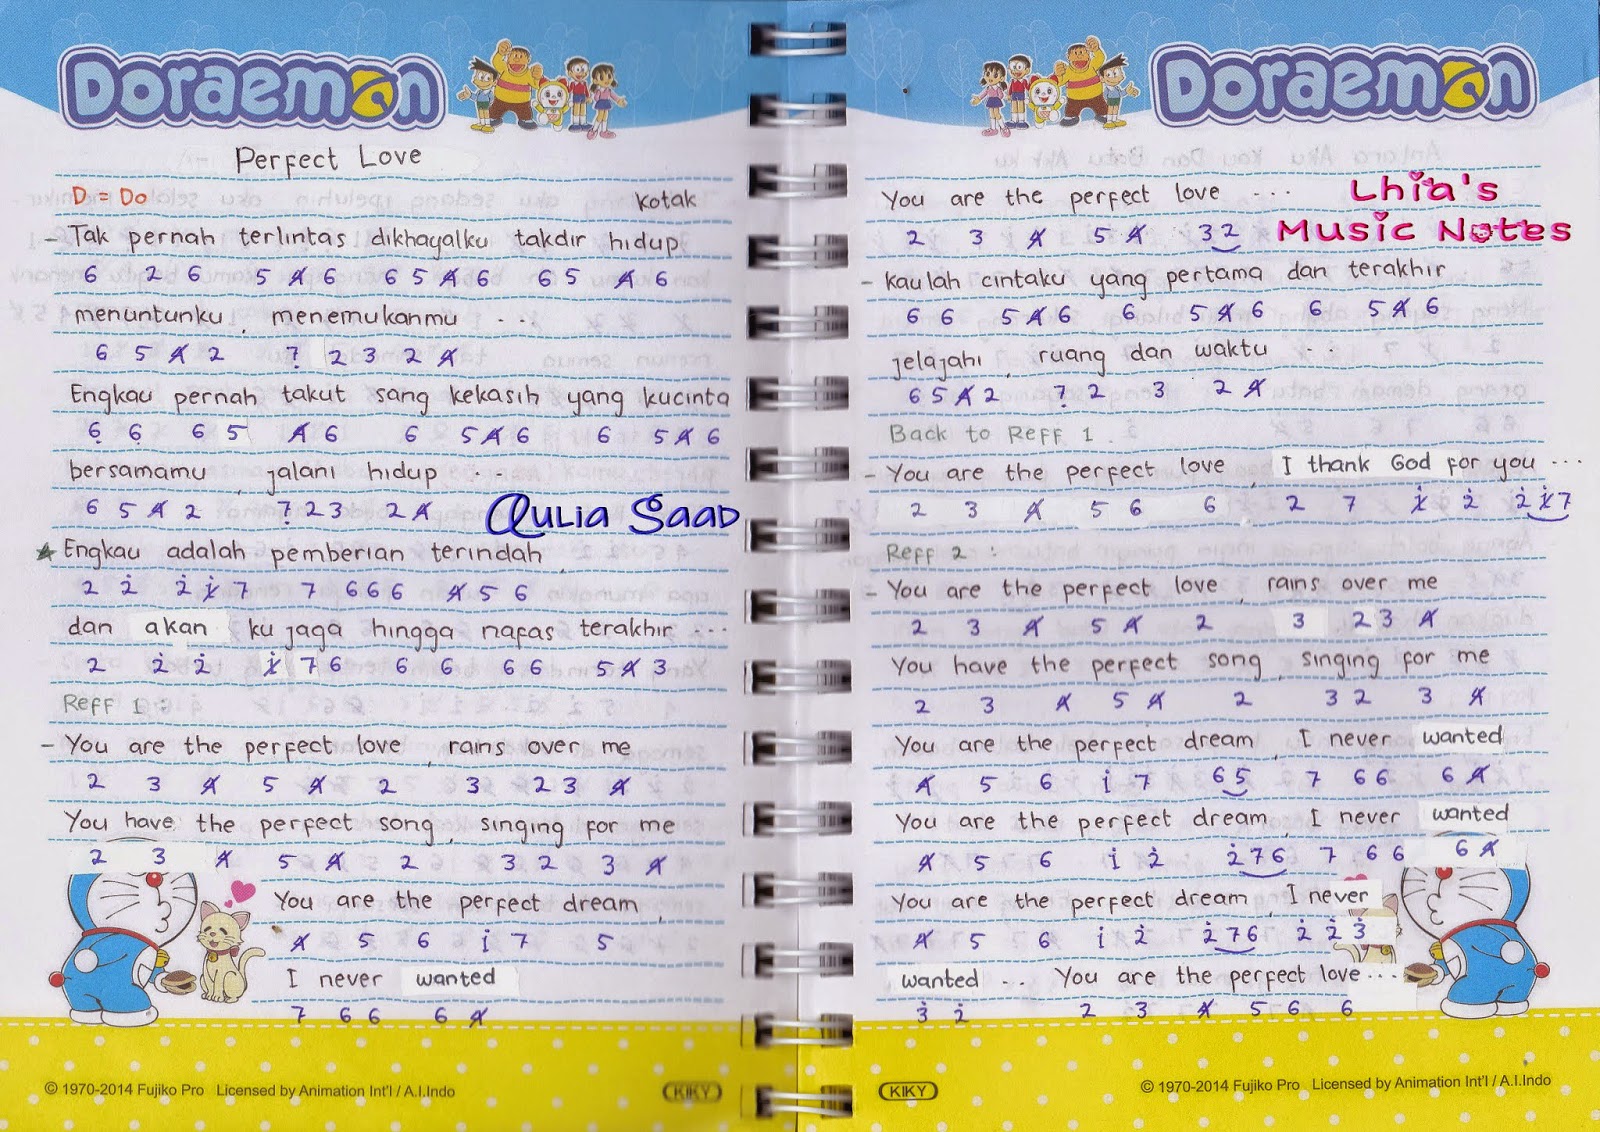 Doraemon
Perfect Love
D = Do kotak
- Tak pernah terlintas dikhayalku takdir hidup
6 2 6 5 4̸ 6 6 5 4̸ 6 6 5 4̸ 6
menuntunku, menemukanmu ...
6 5 4̸ 2 7̣ 2 3 2 4̸
Engkau pernah takut sang kekasih yang kucinta
6̣ 6̣ 6 5 4̸ 6 6 5 4̸ 6 6 5 4̸ 6
bersamamu, jalani hidup ...
6 5 4̸ 2 7̣ 2 3 2 4̸
Qulia Saad
★ Engkau adalah pemberian terindah,
2 2̇ 2̇ 1̸̇ 7 7 6 6 6 4̸ 5 6
dan akan ku jaga hingga nafas terakhir ...
2 2̇ 2̇ 1̸̇ 7 6 6 6 6 6 5 4̸ 3
Reff 1 :
- You are the perfect love, rains over me
2 3 4̸ 5 4̸ 2 3 2 3 4̸
You have the perfect song, singing for me
2 3 4̸ 5 4̸ 2 3 2 3 4̸
You are the perfect dream,
4̸ 5 6 1̇ 7 5
I never wanted
7 6 6 6 4̸
© 1970-2014 Fujiko Pro Licensed by Animation Int'l / A.I.Indo
KIKY
Doraemon
You are the perfect love ...
Lhia's
Music Notes
2 3 4̸ 5 4̸ 3 2
- kaulah cintaku yang pertama dan terakhir
6 6 5 4̸ 6 6 5 4̸ 6 6 5 4̸ 6
jelajahi, ruang dan waktu ...
6 5 4̸ 2 7̣ 2 3 2 4̸
Back to Reff 1.
- You are the perfect love, I thank God for you ...
2 3 4̸ 5 6 6 2 7 1̸̇ 2̇ 2̇ 1̸̇ 7
Reff 2 :
- You are the perfect love, rains over me
2 3 4̸ 5 4̸ 2 3 2 3 4̸
You have the perfect song, singing for me
2 3 4̸ 5 4̸ 2 3 2 3 4̸
You are the perfect dream, I never wanted
4̸ 5 6 1̇ 7 6 5 7 6 6 6 4̸
You are the perfect dream, I never wanted
4̸ 5 6 1̇ 2̇ 2̇ 7 6 7 6 6 6 4̸
You are the perfect dream, I never
4̸ 5 6 1̇ 2̇ 2̇ 7 6 2̇ 2̇ 3̇
wanted ... You are the perfect love ...
3̇ 2̇ 2 3 4̸ 5 6 6
KIKY
© 1970-2014 Fujiko Pro Licensed by Animation Int'l / A.I.Indo